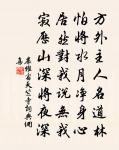 方外主人名道林
怕將水月淨身心
居然對我說無我
寂歷山深將夜深
天竺寺